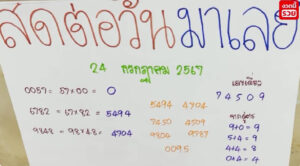 สดต่อวันมาเลย
งวดนี้รวย
24 กรกฎาคม 2567
0057 = 57×00 = 0
6782 = 67×82 = 5494
9848 = 98×48 = 4704
5494 4704
7450 4509
9804 9787
0095
เลขเดี่ยว
74509
9+0 = 9
5+4 = 9
4+4 = 8
0+4 = 4